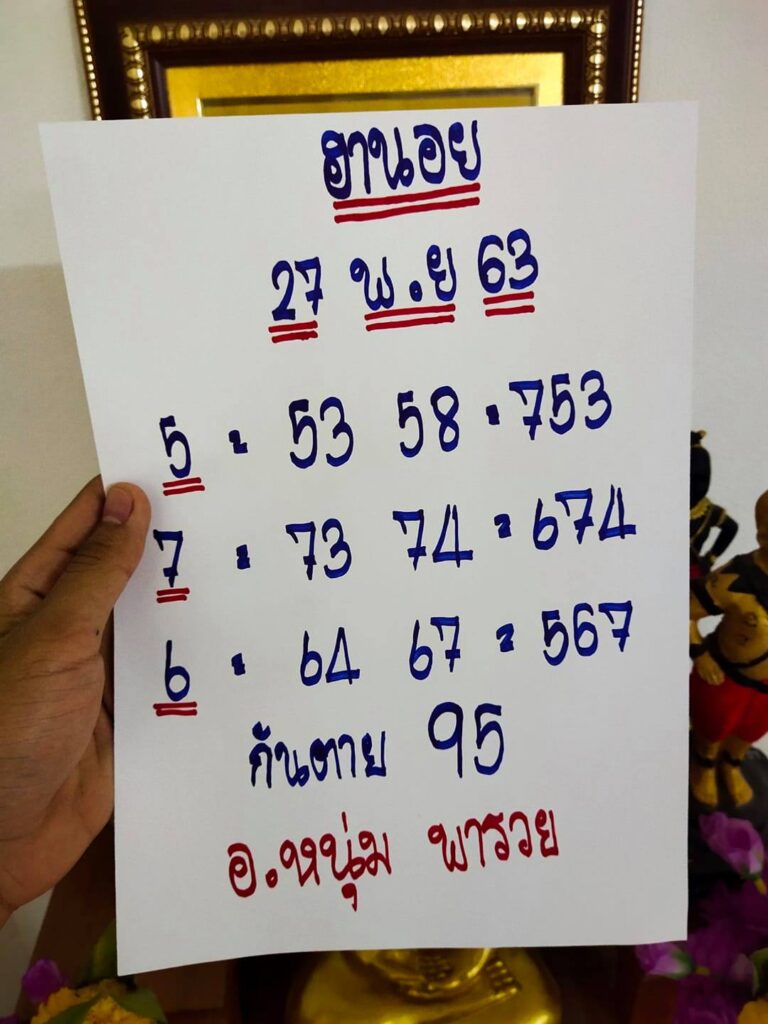 ฮานอย
27 พ.ย 63
5 = 53 58 = 753
7 = 73 74 = 674
6 = 64 67 = 567
กันตาย 95
อ.หนุ่ม พารวย